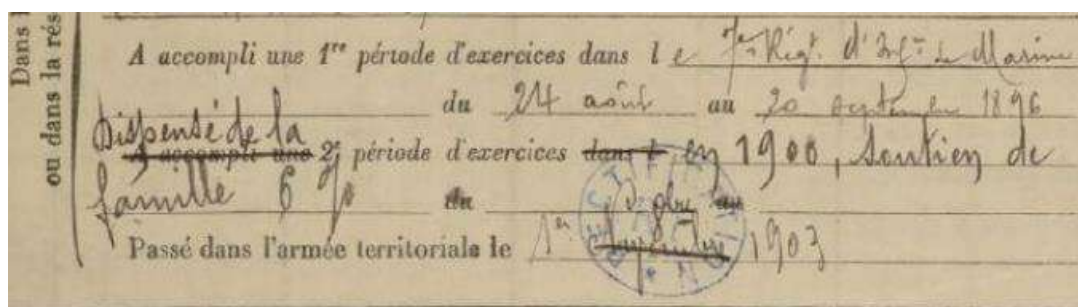 Dans l
ou dans la rés
A accompli une 1re période d'exercices dans le 7e Régt. d'Infie de Marine
du 24 août au 20 septembre 1896
Dispensé de la
A accompli une 2e période d'exercices dans l en 1900, soutien de
famille 6 % du au
Passé dans l'armée territoriale le 1er novembre 1903